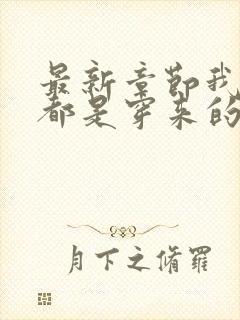 最新章节我
都是穿来的
月下之脩羅